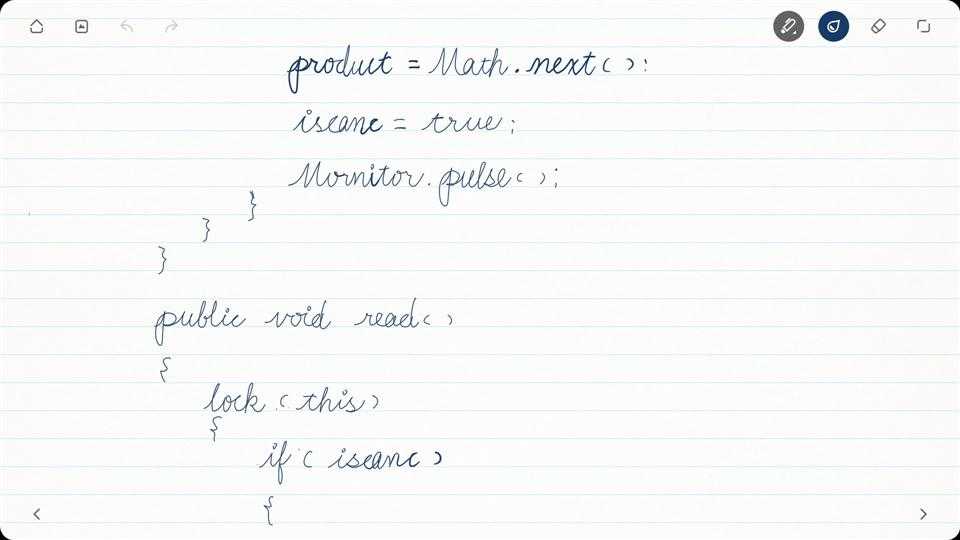 product = Math.next():
iscanc = true;
Mornitor.pulse();
}
}
}
public void read()
{
lock (this)
{
if ( iscanc )
{